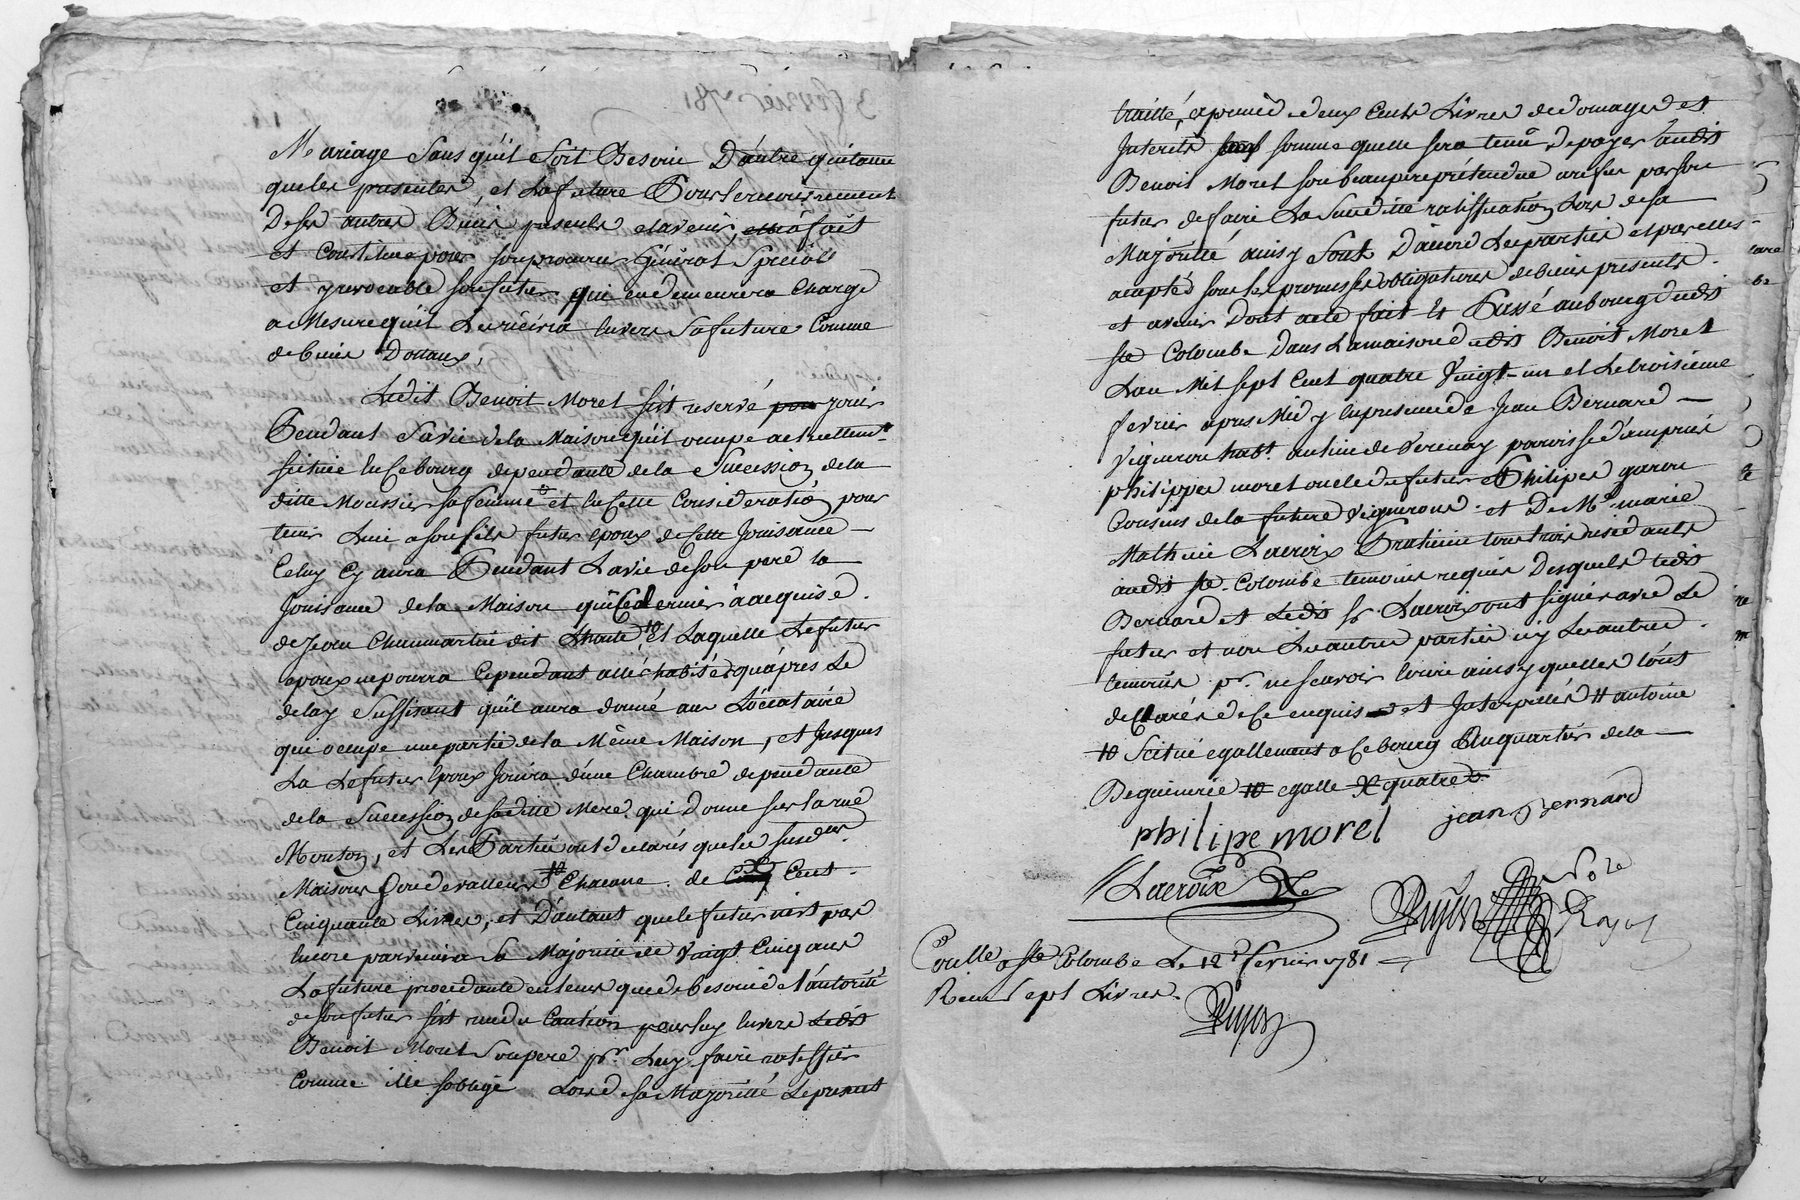 Mariage sans qu'il soit Besoin D'autre quittance
que les presentes, et La future Pour le recouvrement
De ses autres Biens presents et avenir, a fait
et Constitue pour son procureur Général Special
et yrevocable son futur qui en demeurera Chargé
a Mesure qu'il Les recevra envers Sa future Comme
de biens Dottaux,
Ledit Benoit Morel s'est reservé jouir
Pendant Sa vie de la Maison qu'il occupe actuellemt
scituée en Ce bourg dependante de la Succession de la
ditte Moussier sa femme et en Cette Consideration pour
tenir Lieu a son fils futur Epoux de Cette Jouisance
Celuy Cy aura Pendant La vie de son pere la
Jouisance de la Maison que Ce dernier a acquise
de Jean Chaumartin dit 10 Et Laquelle Le futur
epoux ne pourra Cependant aller habiter qu'apres Le
delay Suffisant qu'il aura donné au Locataire
qui occupe une partie de la Même Maison, et Jusques
La Le futur Epoux Jouira d'une Chambre dependante
de la Succession de sa ditte Mere qui Donne sur la rue
Mouton, et Les Parties ont declarés que les susdes
Maisons Sont de valleur 10 Chacune de Cent
Cinquante Livres, et D'autant que le futur n'est pas
Encore parvenu a Sa Majorité de Vaingt Cinq ans
La future procedante en tems que de besoin de l'autorité
de son futur s'est rendu Caution pour luy Envers Ledit
Benoit Morel Son pere pr Luy faire ratiffier
Comme elle s'oblige Lors de sa Majorité Le present
traitté, a peine de deux Cents Livres de domages et
Interets somme quelle sera tenue de payer audit
Benoit Morel son beaupere prétendu au refus par son
futur de faire La Susditte ratiffication Lors de sa
Majorité ainsy Sont D'accord Les parties et par elles
accepté sous les promesses obligations de biens presents
et avenir Dont acte fait et Passé au bourg dudit
Ste Colombe Dans La maison dudit Benoit Morel
L'an Mil sept Cent quatre Vingt-un et Le troisieme
fevrier apres Midy En presence de Jean Bernard
Vigneron habt au lieu de Verenay paroisse d'ampuis
philippe morel oncle du futur Philipe garon
Cousin de la future vignerons et De Me marie
Mathieu Lacroix Praticien tous trois residants
audit Ste Colombe temoins requis Desquels Ledit
Bernard et Ledit sr Lacroix ont signés avec Le
futur et non Les autres parties ny Les autres
temoins pr ne scavoir Ecrire ainsy quelles l'ont
declarés de Ce enquis et Interpellés # antoine
10 Scitué egallement a Ce bourg Au quartier de la
Beguinerie 10 egalle X quatre
philipe morel jean Bernard
Lacroix
Royol
Conlle a Ste Colombe Le 12e fevrier 1781
Recu Sept Livres